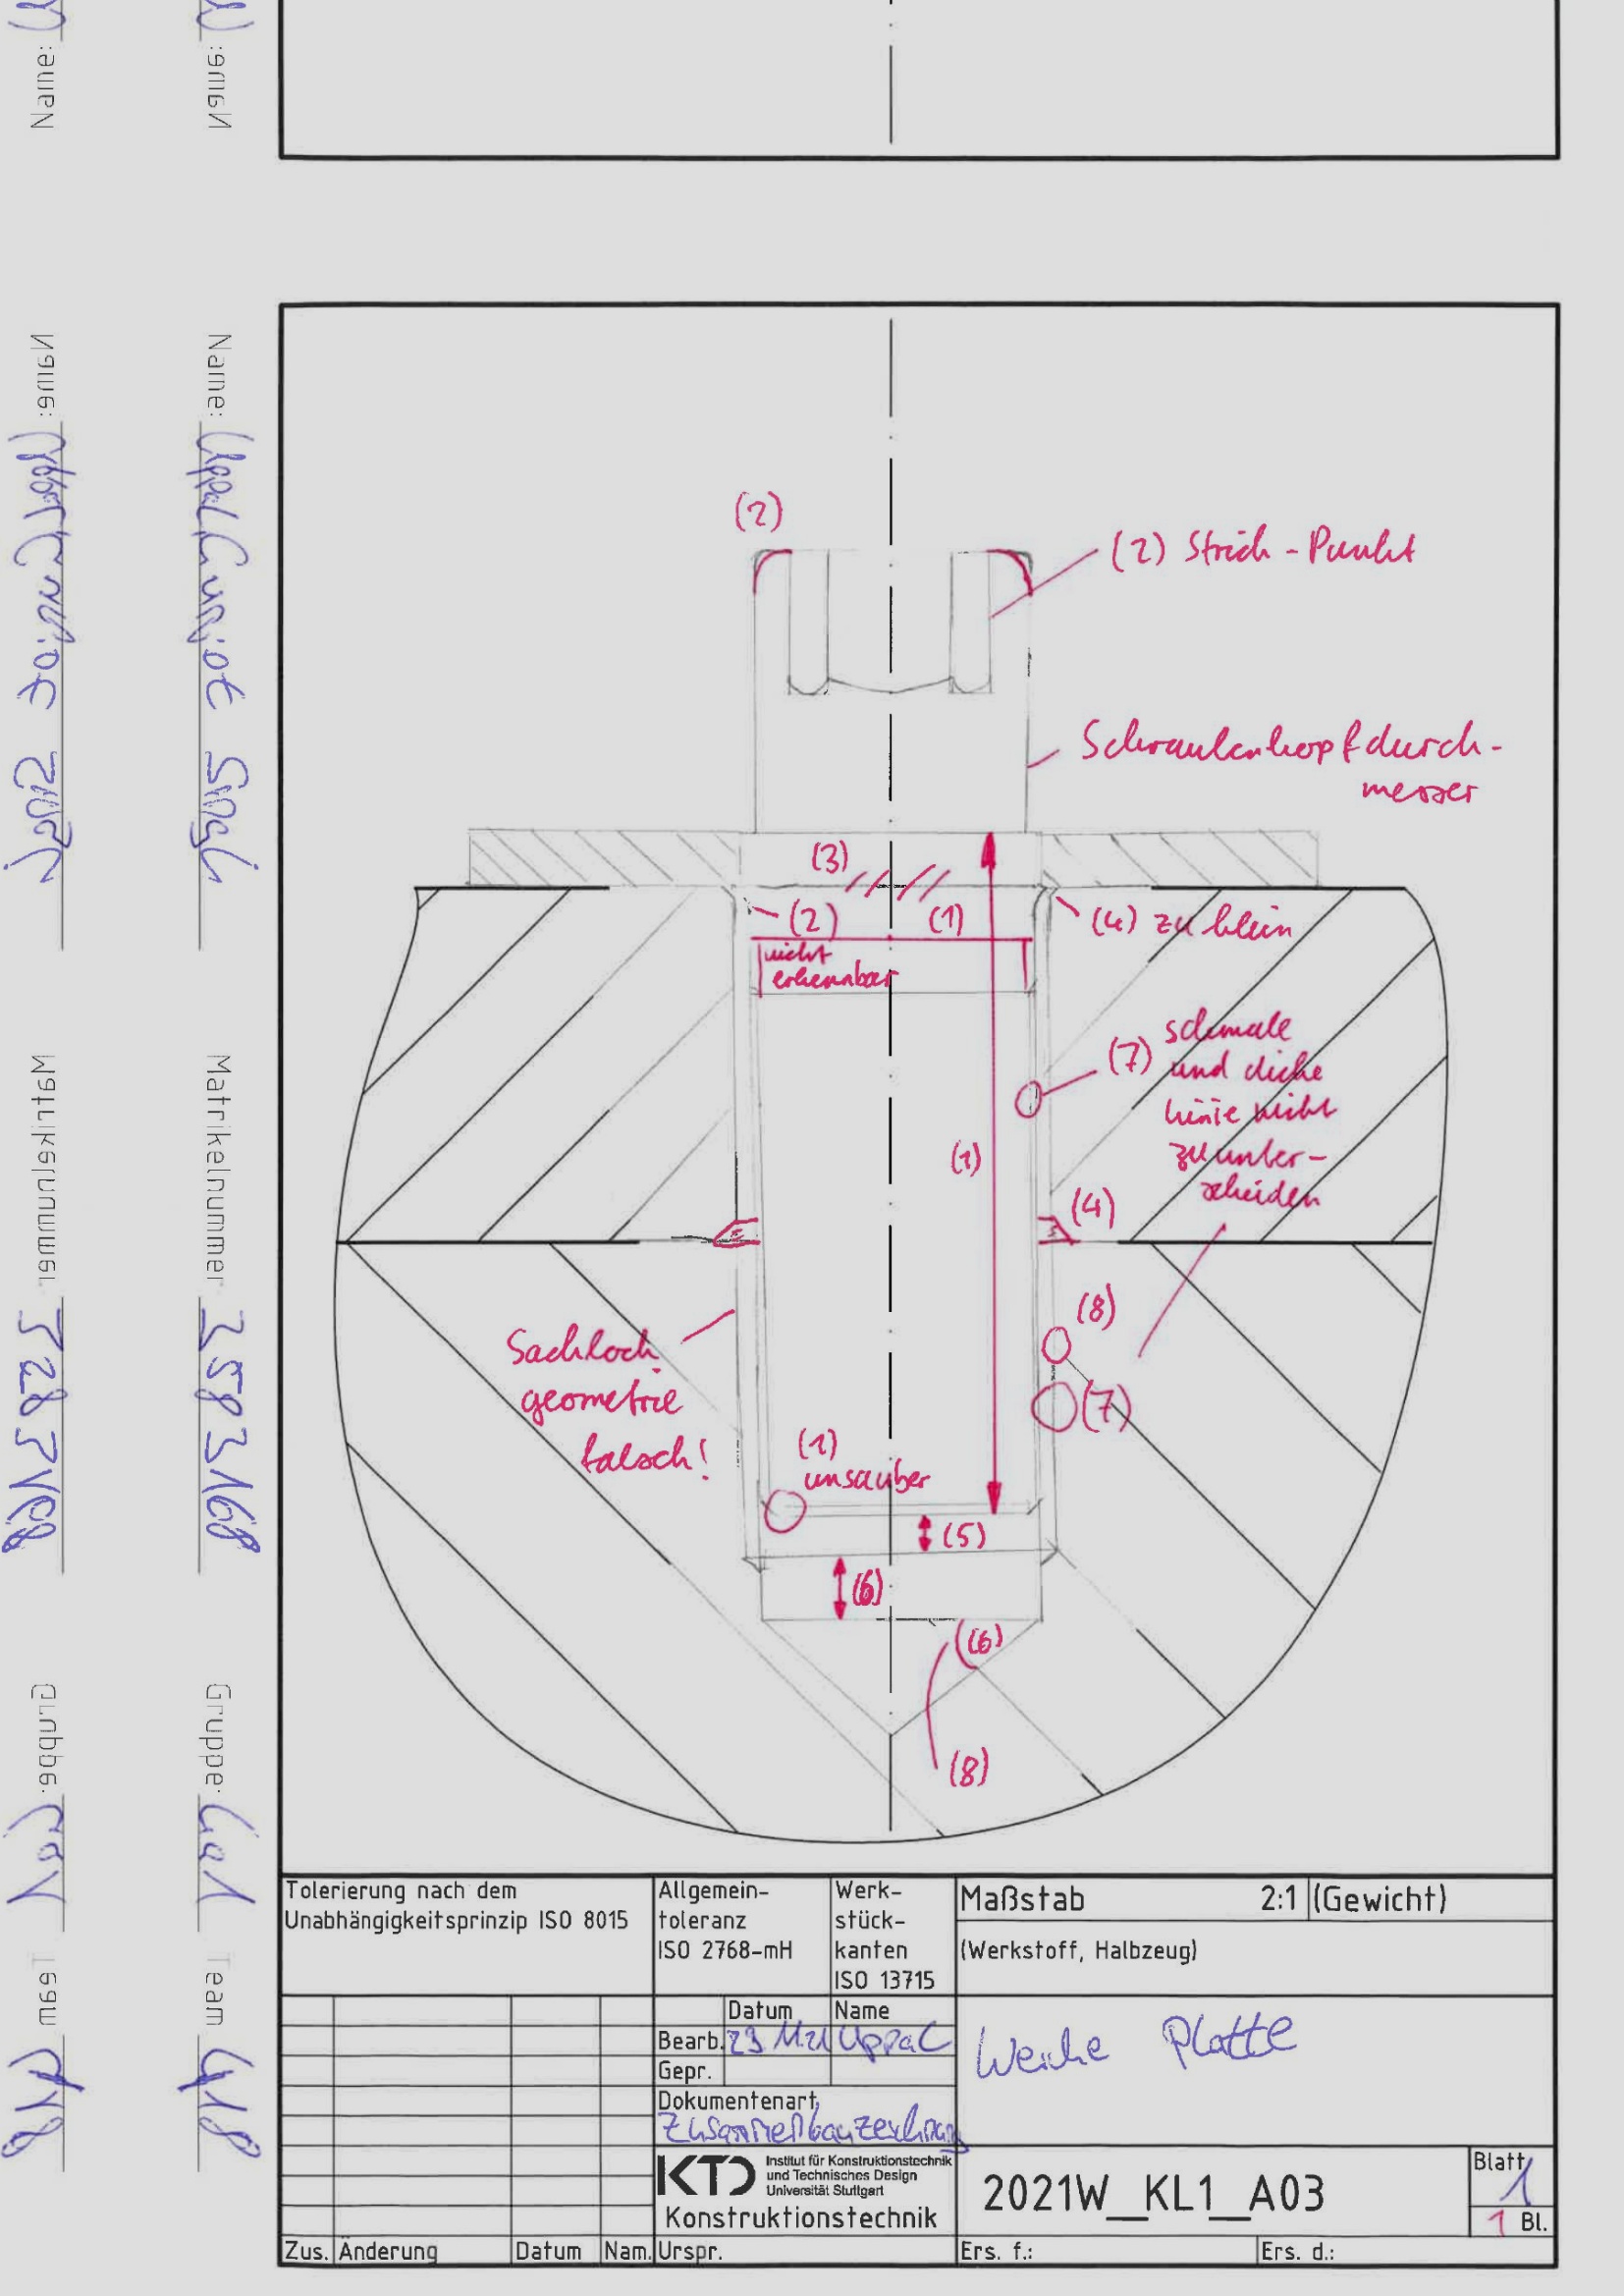 Name:
Name: Uppal Gurjot Singh
Matrikelnummer 3583168
Gruppe. Ga1
Team 418
(2)
(2) Strich-Punkt
Schraubenkopfdurch-
messer
(3)
(2)
(1)
(4) zu klein
nicht
erkennbar
(7) schmale
und dicke
Linie nicht
zu unter-
scheiden
(1)
(4)
(8)
Sachloch
geometrie
falsch!
(7)
(1)
unsauber
(5)
(6)
(6)
(8)
Tolerierung nach dem
Unabhängigkeitsprinzip ISO 8015
Allgemein-
toleranz
ISO 2768-mH
Werk-
stück-
kanten
ISO 13715
Maßstab 2:1 (Gewicht)
(Werkstoff, Halbzeug)
Datum Name
Bearb. Uppal
Gepr.
Weiche Platte
Dokumentenart
Zusammenbauzeichnung
KTD Institut für Konstruktionstechnik
und Technisches Design
Universität Stuttgart
Konstruktionstechnik
2021W_KL1_A03
Blatt 1
1 Bl.
Zus. Änderung Datum Nam. Urspr. Ers. f.: Ers. d.: